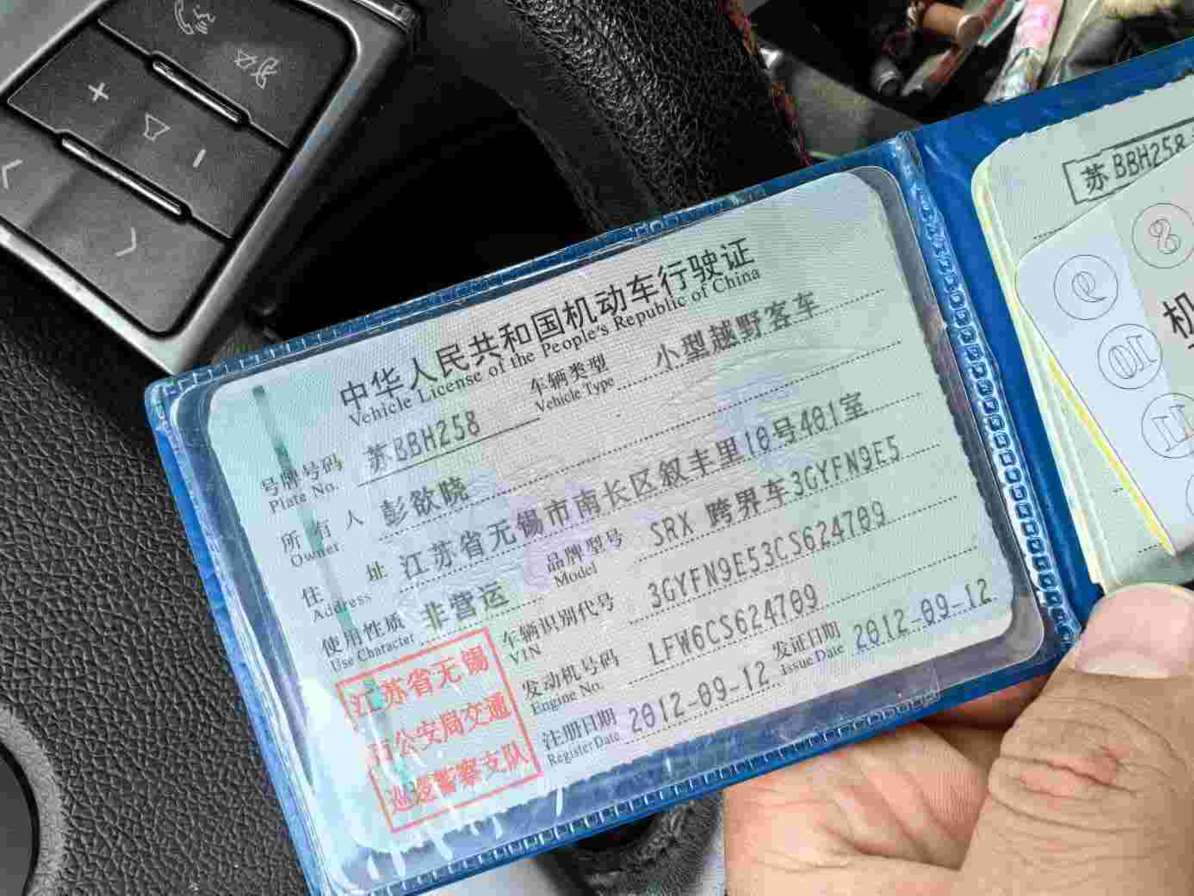 中华人民共和国机动车行驶证
Vehicle License of the People's Republic of China
号牌号码 苏BBH258 车辆类型 小型越野客车
Plate No. Vehicle Type
所有人 彭欲晓
Owner
住址 江苏省无锡市南长区叙丰里10号401室
Address
使用性质 非营运 品牌型号 SRX 跨界车3GYFN9E5
Use Character Model
车辆识别代号 3GYFN9E53CS624709
VIN
发动机号码 LFW6CS624709
Engine No.
注册日期 2012-09-12 发证日期 2012-09-12
Register Date Issue Date
江苏省无锡
市公安局交通
巡逻警察支队
苏BBH258
8
9
10
11
机